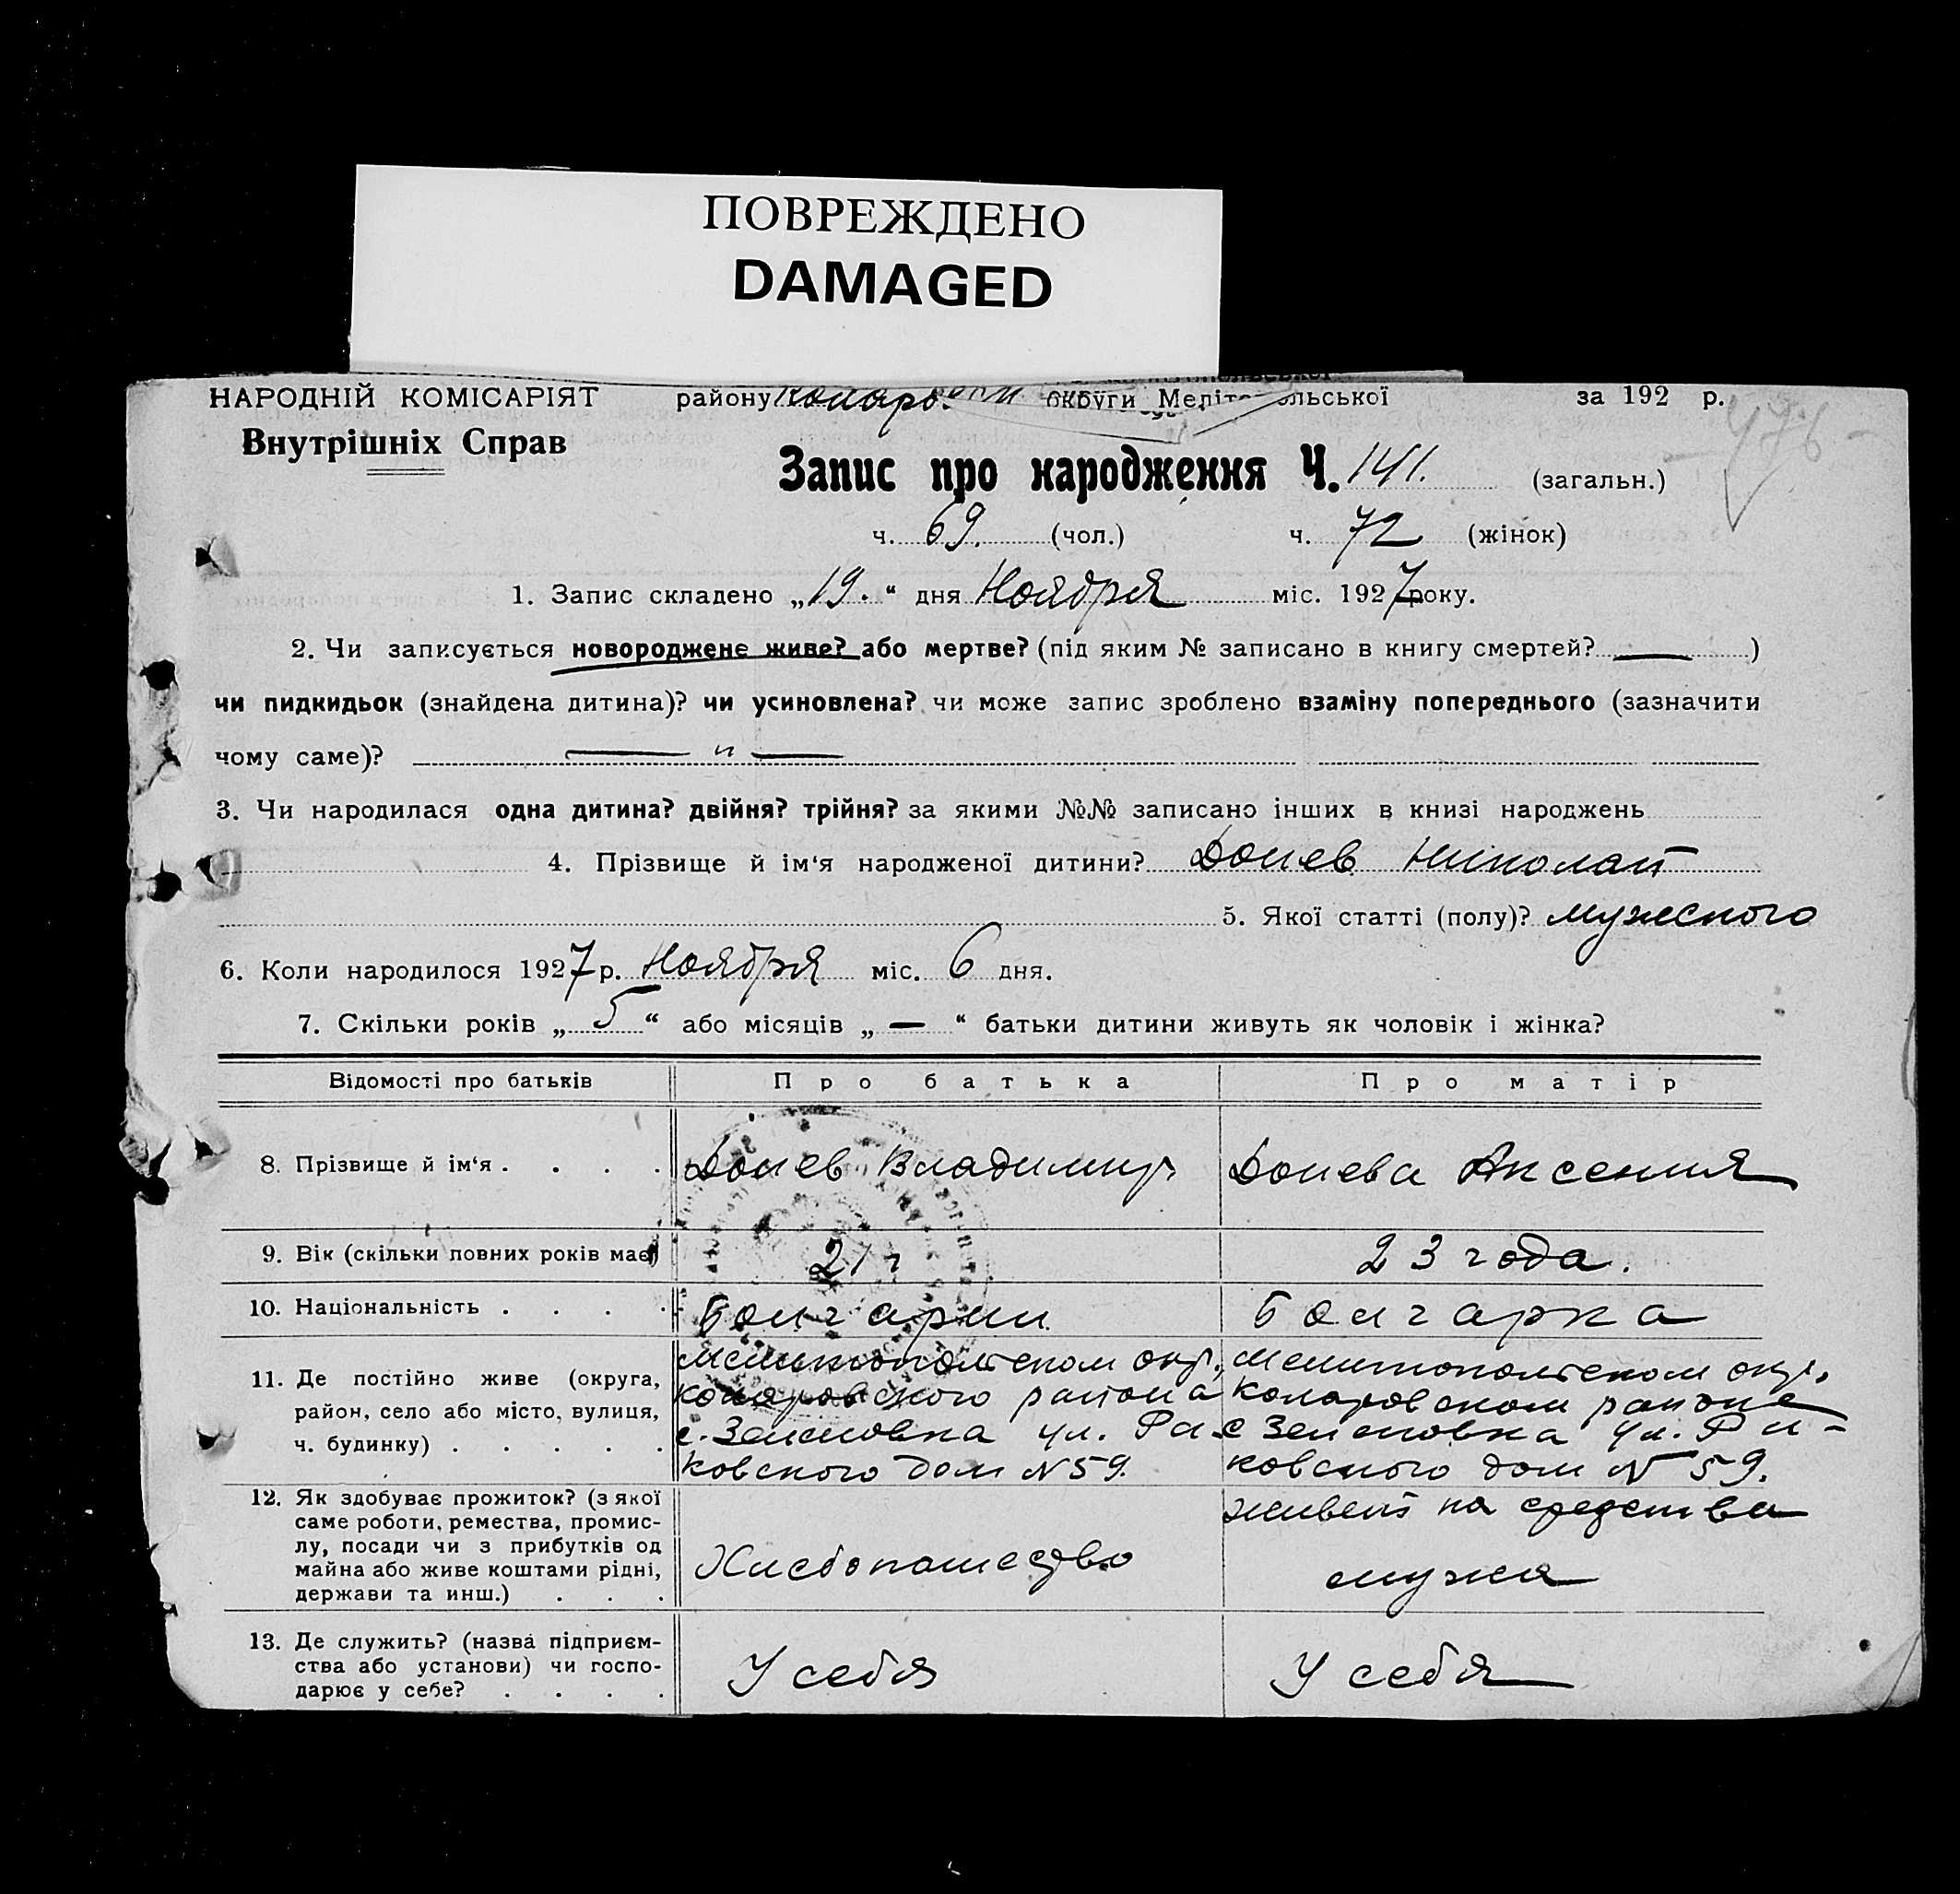 ПОВРЕЖДЕНО
DAMAGED
НАРОДНІЙ КОМІСАРІЯТ району округи Меліт ольської за 192 р.
Внутрішніх Справ
476
Запис про народження Ч. 141. (загальн.)
ч. 69. (чол.) ч. 72 (жінок)
1. Запис складено „19.“ дня Ноября міс. 1927 року.
2. Чи записується новороджене живе? або мертве? (під яким № записано в книгу смертей? — )
чи пидкидьок (знайдена дитина)? чи усиновлена? чи може запис зроблено взаміну попереднього (зазначити
чому саме)? — „ —
3. Чи народилася одна дитина? двійня? трійня? за якими №№ записано інших в книзі народжень
4. Прізвище й ім‘я народженої дитини? Донев Николай
5. Якої статті (полу)? мужского
6. Коли народилося 1927 р. Ноября міс. 6 дня.
7. Скільки років „ 5 “ або місяців „ — “ батьки дитини живуть як чоловік і жінка?
Відомості про батьків Про батька Про матір
8. Прізвище й ім‘я . . . . Донев Владимир Донева Аксения
9. Вік (скільки повних років має) 21 г 23 года.
10. Національність . . . . Болгарин Болгарка
11. Де постійно живе (округа, район, село або місто, вулиця, ч. будинку) . . . . .
Мелитопольском окр.
Коларовского района
с. Зеленовка ул. Ра-
ковского дом N 59.
Мелитопольском окр.
Коларовском районе
с Зеленовка ул. Ра-
ковского дом N 59.
12. Як здобуває прожиток? (з якої
саме роботи, ремества, промис-
лу, посади чи з прибутків од
майна або живе коштами рідні,
держави та инш.) . . .
Хлебопашество
живет на средства
мужа
13. Де служить? (назва підприєм-
ства або установи) чи госпо-
дарює у себе? . . . .
У себя
У себя